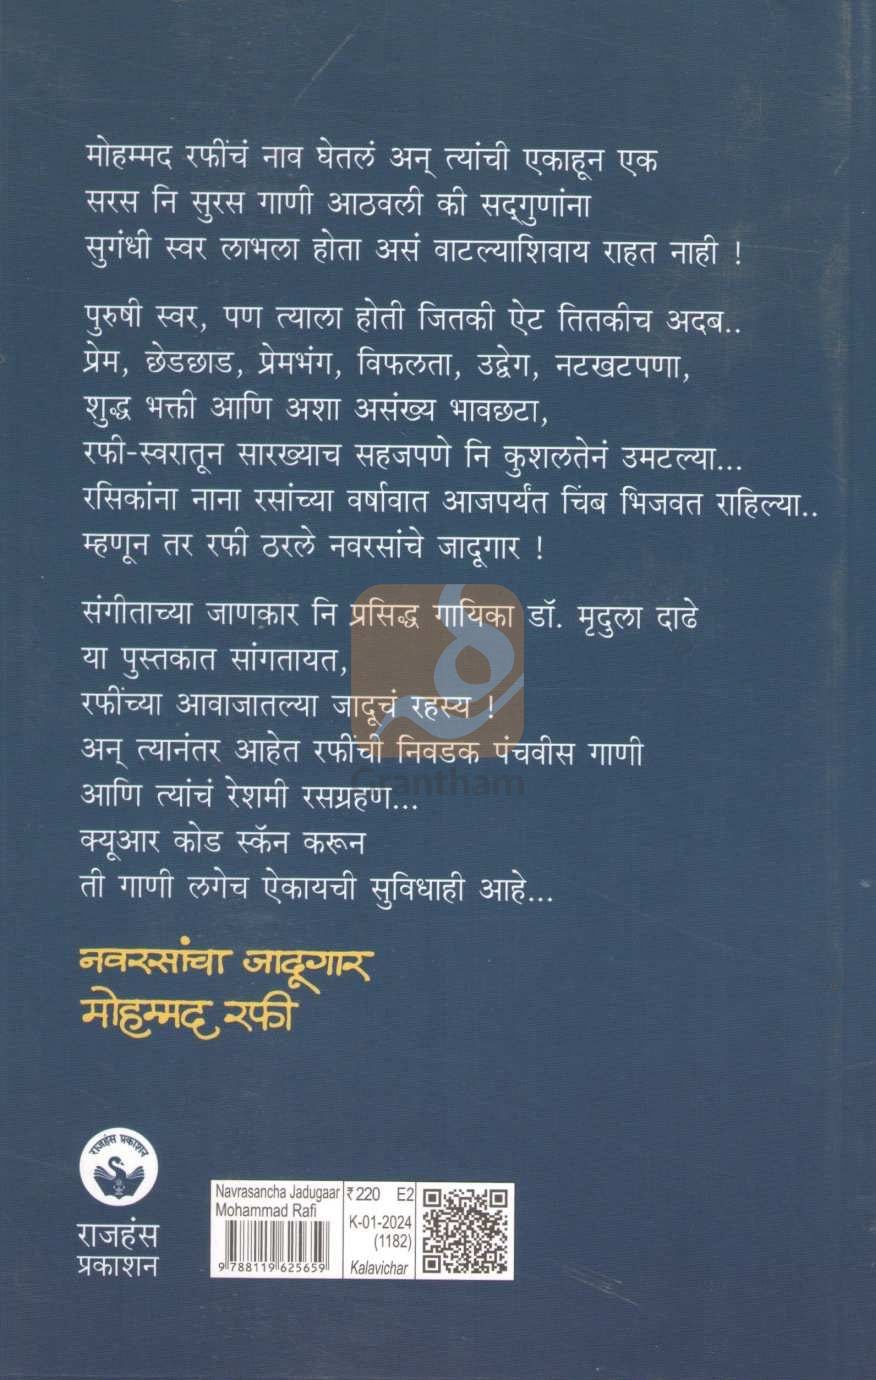 मोहम्मद रफींचं नाव घेतलं अन् त्यांची एकाहून एक
सरस नि सुरस गाणी आठवली की सद्‌गुणांना
सुगंधी स्वर लाभला होता असं वाटल्याशिवाय राहत नाही !
पुरुषी स्वर, पण त्याला होती जितकी ऐट तितकीच अदब..
प्रेम, छेडछाड, प्रेमभंग, विफलता, उद्वेग, नटखटपणा,
शुद्ध भक्ती आणि अशा असंख्य भावछटा,
रफी-स्वरातून सारख्याच सहजपणे नि कुशलतेनं उमटल्या...
रसिकांना नाना रसांच्या वर्षावात आजपर्यंत चिंब भिजवत राहिल्या..
म्हणून तर रफी ठरले नवरसांचे जादूगार !
संगीताच्या जाणकार नि प्रसिद्ध गायिका डॉ. मृदुला दाढे
या पुस्तकात सांगतायत,
रफींच्या आवाजातल्या जादूचं रहस्य !
अन् त्यानंतर आहेत रफींची निवडक पंचवीस गाणी
Grantham
आणि त्यांचं रेशमी रसग्रहण...
क्यूआर कोड स्कॅन करून
ती गाणी लगेच ऐकायची सुविधाही आहे...
नवरसांचा जादूगार
मोहम्मद रफी
राजहंस प्रकाशन
राजहंस
प्रकाशन
Navrasancha Jadugaar
Mohammad Rafi
9 788119 625659
₹ 220 E2
K-01-2024
(1182)
Kalavichar